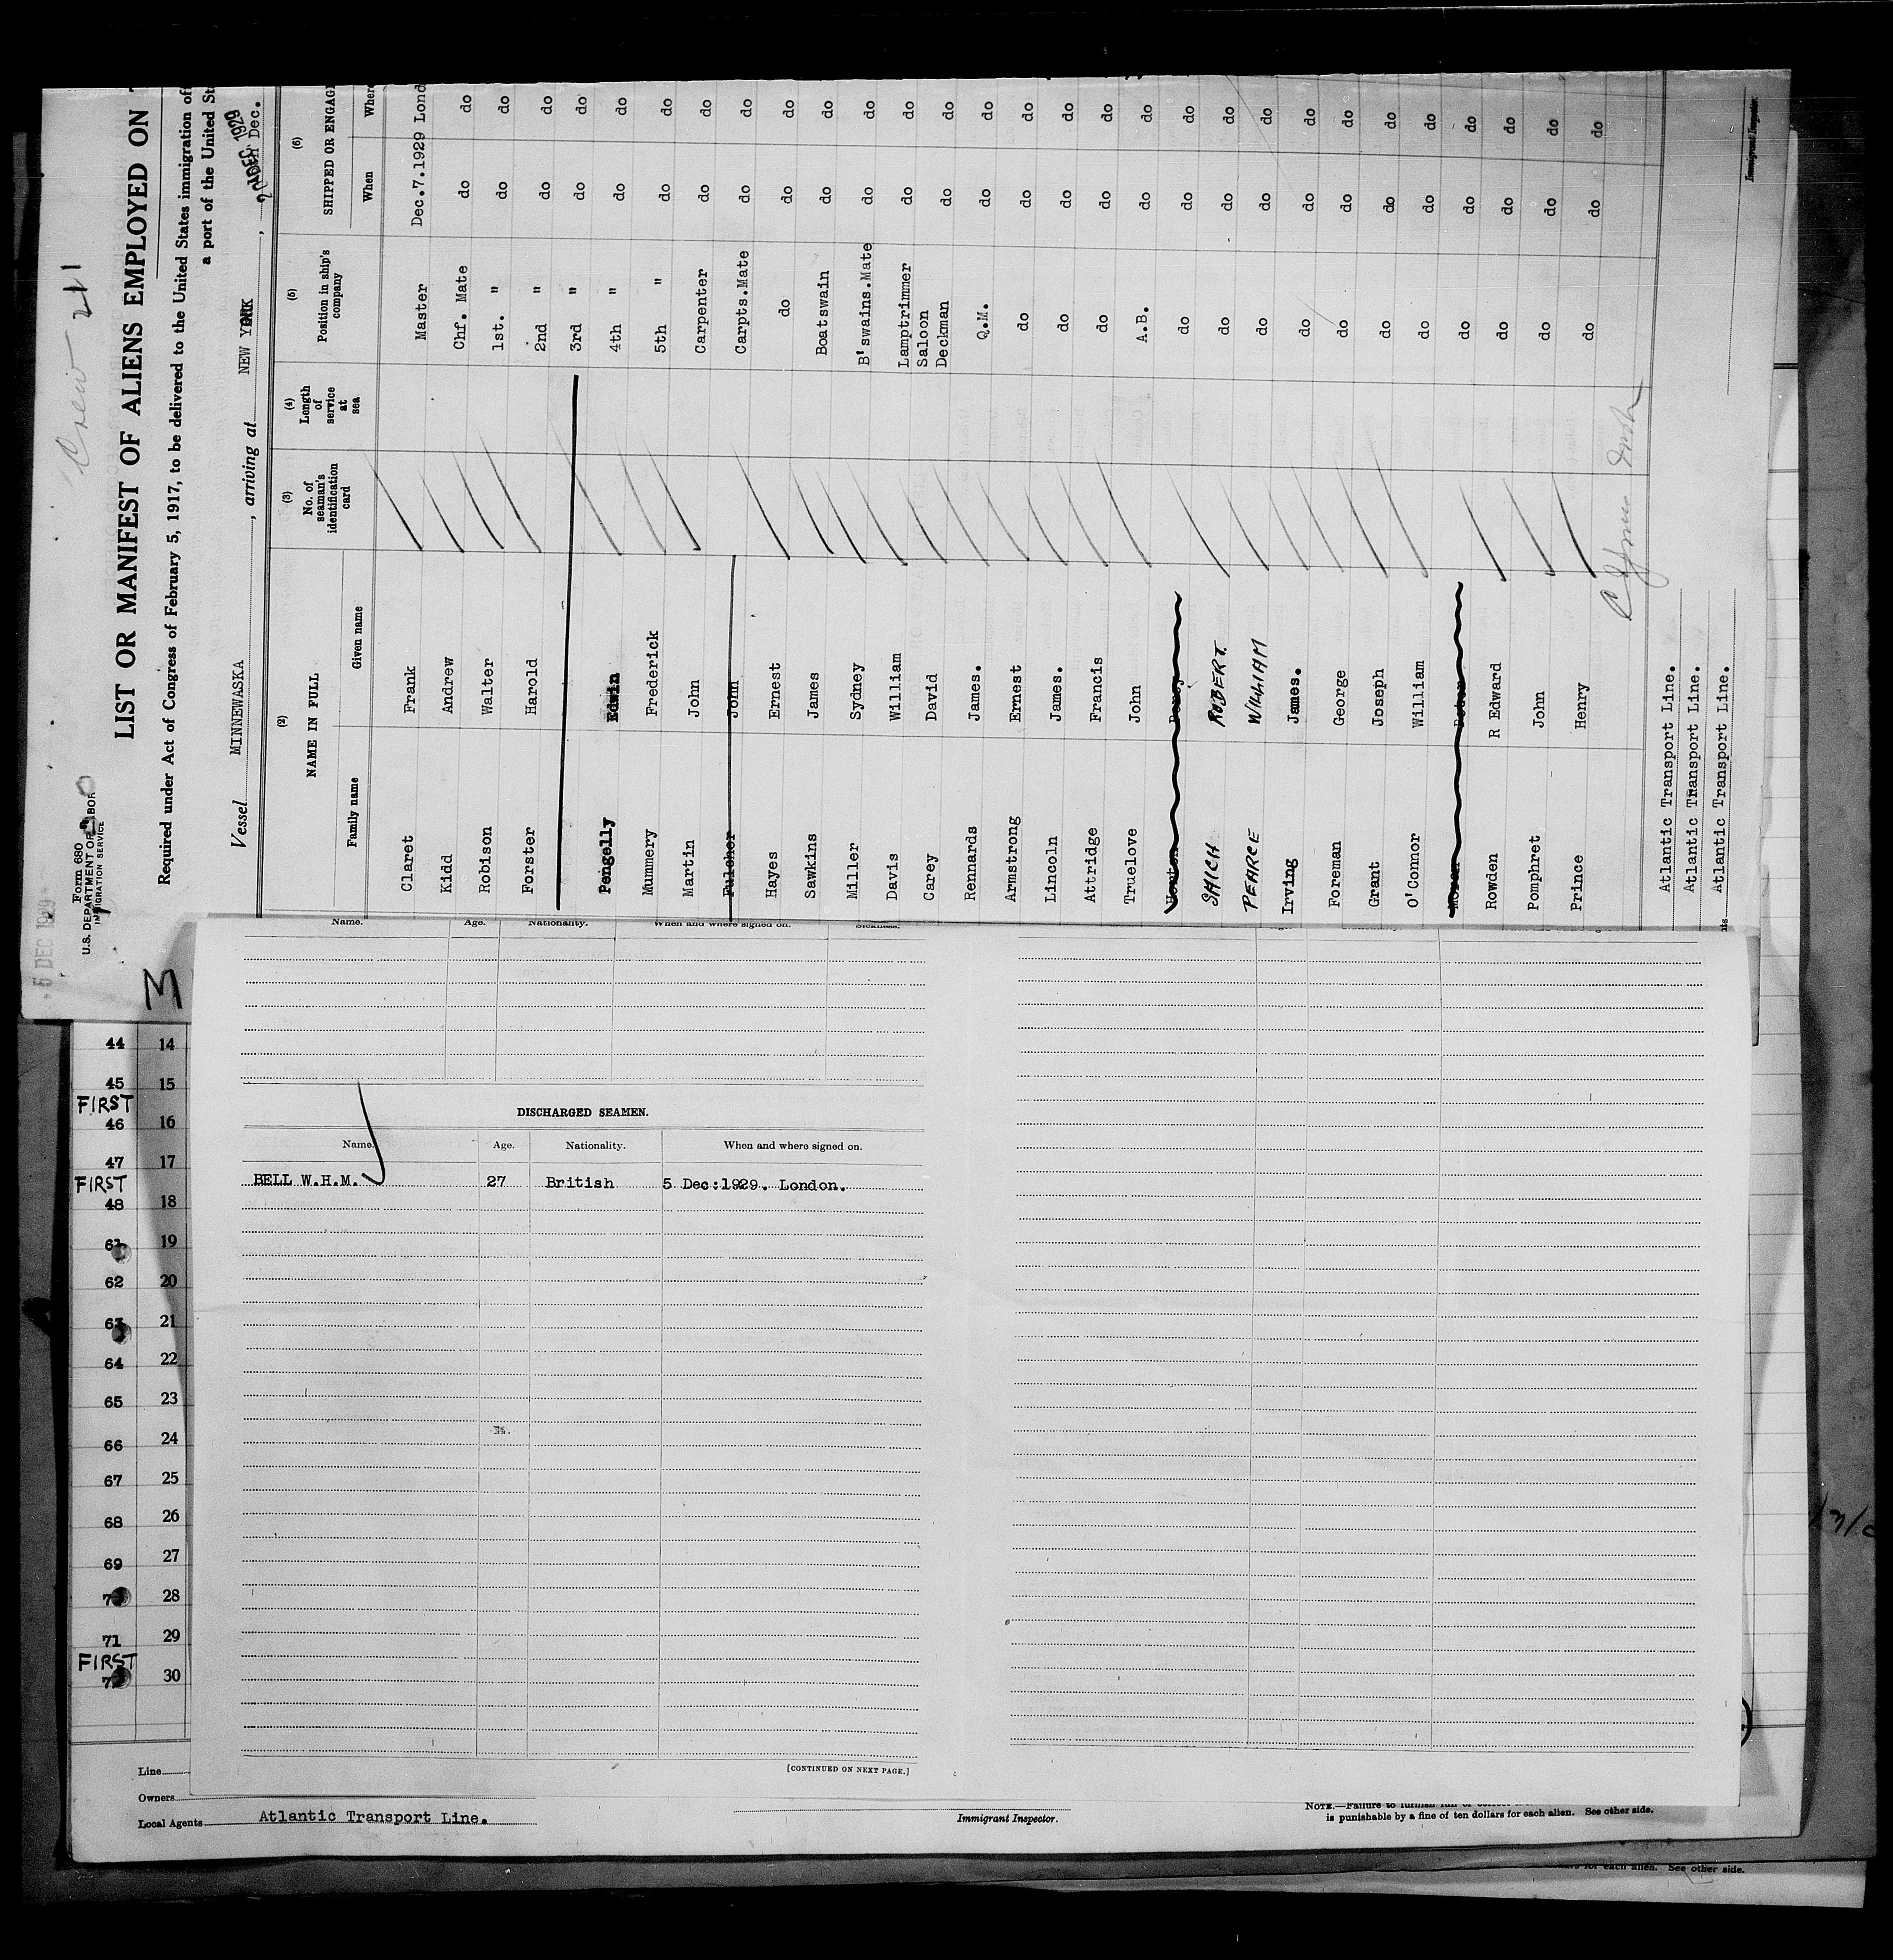 Crew 211
5 DEC 1929
Form 680
U.S. DEPARTMENT OF LABOR
IMMIGRATION SERVICE
LIST OR MANIFEST OF ALIENS EMPLOYED ON
Required under Act of Congress of February 5, 1917, to be delivered to the United States immigration of
a port of the United St
Vessel MINNEWASKA, arriving at NEW YORK, Dec.
DEC 1929
(2) (3) (4) (5) (6)
NAME IN FULL No. of seaman's identification card Length of service at sea Position in ship's company SHIPPED OR ENGAG
Family name Given name When Where
Claret Frank Master Dec.7.1929 Lond
Kidd Andrew Chf. Mate do do
Robison Walter 1st. " do do
Forster Harold 2nd " do do
3rd " do do
Pengelly Edwin 4th " do do
Mummery Frederick 5th " do do
Martin John Carpenter do do
Fulcher John Carpts.Mate do do
Hayes Ernest do do do
Sawkins James Boatswain do do
Miller Sydney B'swains.Mate do do
Davis William Lamptrimmer do do
Carey David Saloon Deckman do do
Rennards James. Q.M. do do
Armstrong Ernest do do do
Lincoln James. do do do
Attridge Francis do do do
Truelove John A.B. do do
do do do
SAICH ROBERT do do do
PEARCE WILLIAM do do do
Irving James. do do do
Foreman George do do do
Grant Joseph do do do
O'Connor William do do do
do do do
Rowden R Edward do do do
Pomphret John do do do
Prince Henry do do do
Atlantic Transport Line.
Atlantic Transport Line.
Atlantic Transport Line.
Immigrant Inspector.
M
Name. Age. Nationality. When and where signed on. Sickness.
DISCHARGED SEAMEN.
Name. Age. Nationality. When and where signed on.
BELL W.H.M. 27 British 5 Dec:1929. London.
[CONTINUED ON NEXT PAGE.]
44 14
45 15
FIRST
46 16
47 17
FIRST
48 18
61 19
62 20
63 21
64 22
65 23
66 24
67 25
68 26
69 27
7 28
71 29
FIRST
7 30
Line
Owners
Local Agents Atlantic Transport Line.
Immigrant Inspector.
NOTE.—Failure to furnish
is punishable by a fine of ten dollars for each alien. See other side.
for each alien. See other side.